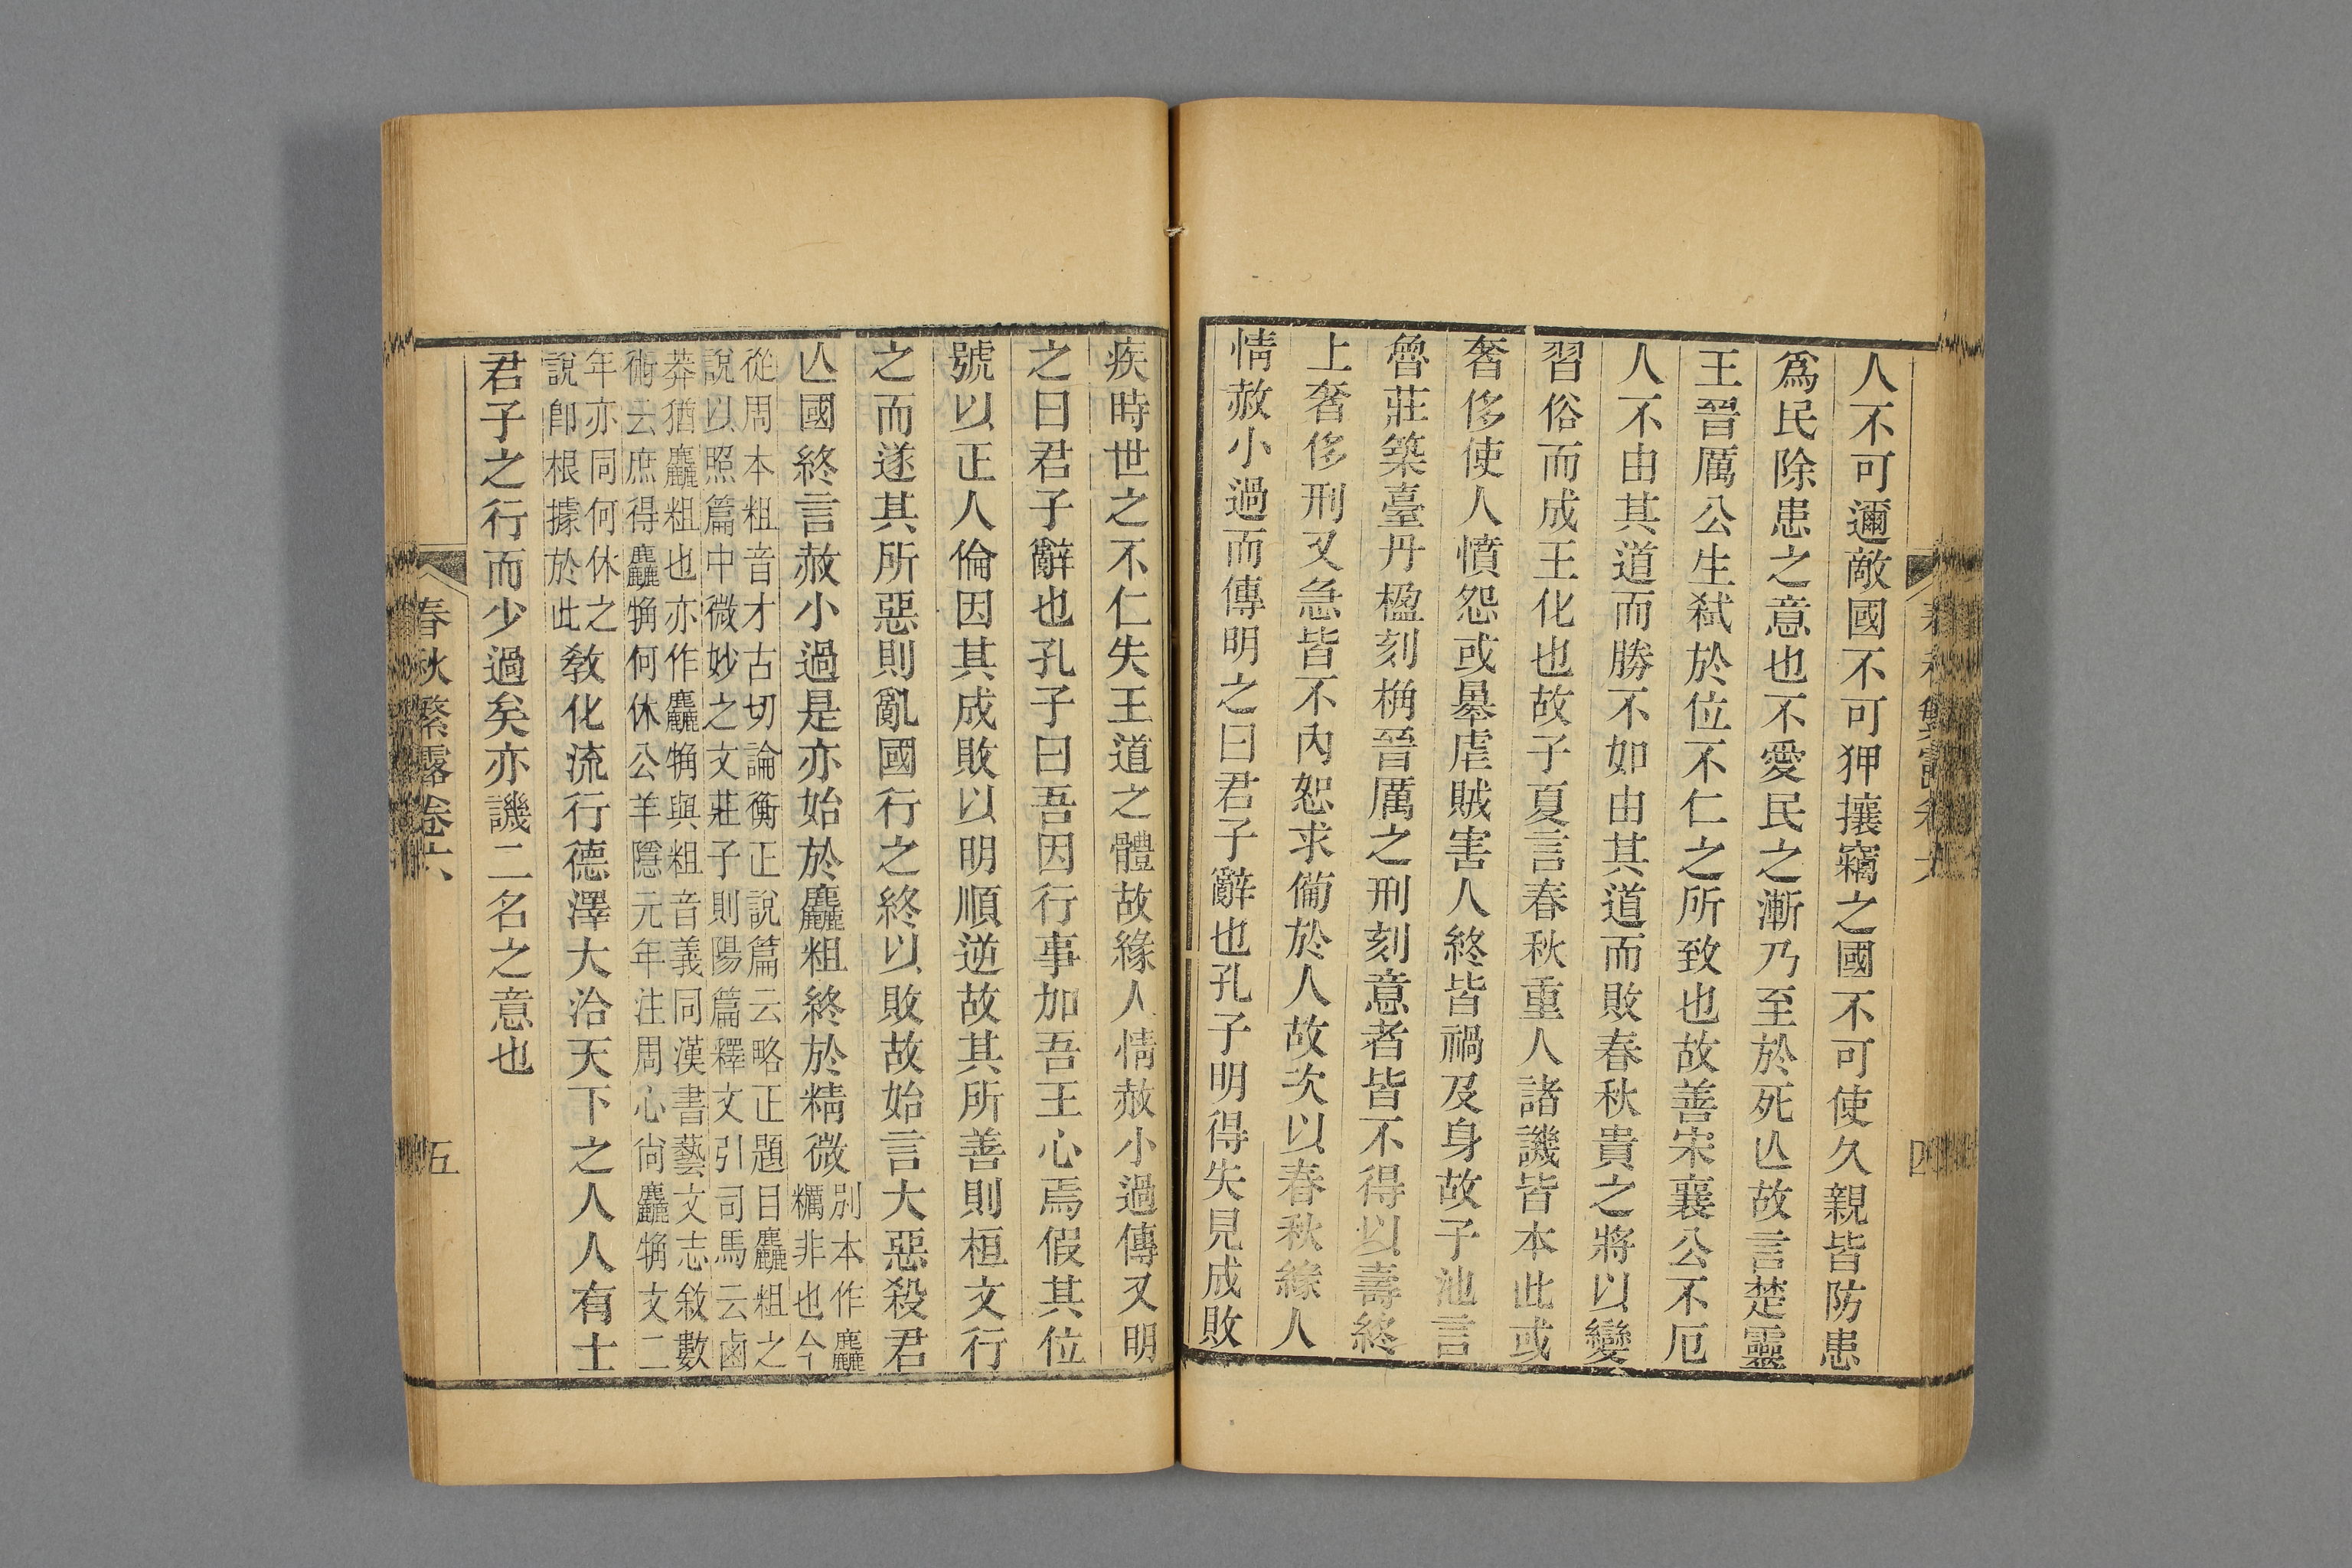 人不可邇敵國不可狎攘竊之國不可使久親皆防患
爲民除患之意也不愛民之漸乃至於死亾故言楚靈
王晉厲公生弒於位不仁之所致也故善宋襄公不厄
人不由其道而勝不如由其道而敗春秋貴之將以變
習俗而成王化也故子夏言春秋重人諸譏皆本此或
奢侈使人憤怨或暴虐賊害人終皆禍及身故子池言
魯莊築臺丹楹刻桷晉厲之刑刻意者皆不得以壽終
上奢侈刑又急皆不內恕求備於人故次以春秋緣人
情赦小過而傳明之曰君子辭也孔子明得失見成敗
疾時世之不仁失王道之體故緣人情赦小過傳又明
之曰君子辭也孔子曰吾因行事加吾王心焉假其位
號以正人倫因其成敗以明順逆故其所善則桓文行
之而遂其所惡則亂國行之終以敗故始言大惡殺君
亾國終言赦小過是亦始於麤粗終於精微別本作麤
糲非也今
從周本粗音才古切論衡正說篇云略正題目麤粗之
說以照篇中微妙之文莊子則陽篇釋文引司馬云鹵
莽猶麤粗也亦作麤觕與粗音義同漢書藝文志敘數
術云庶得麤觕何休公羊隱元年注周心尙麤觕文二
年亦同何休之
說卽根據於此教化流行德澤大洽天下之人人有士
君子之行而少過矣亦譏二名之意也
春秋繁露卷六
五